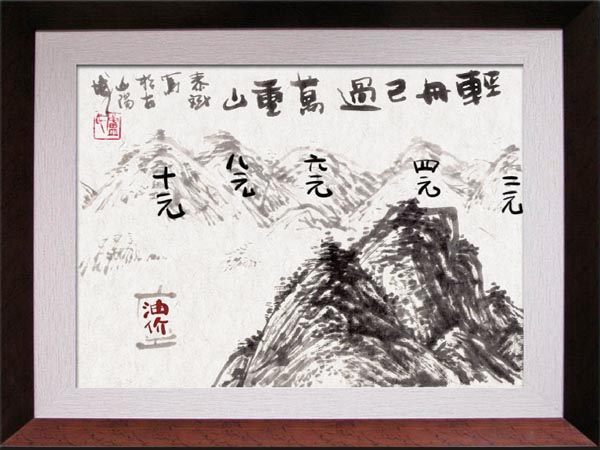 輕舟已過萬重山
寫
於古
山陽
二元
四元
六元
八元
十元
油价